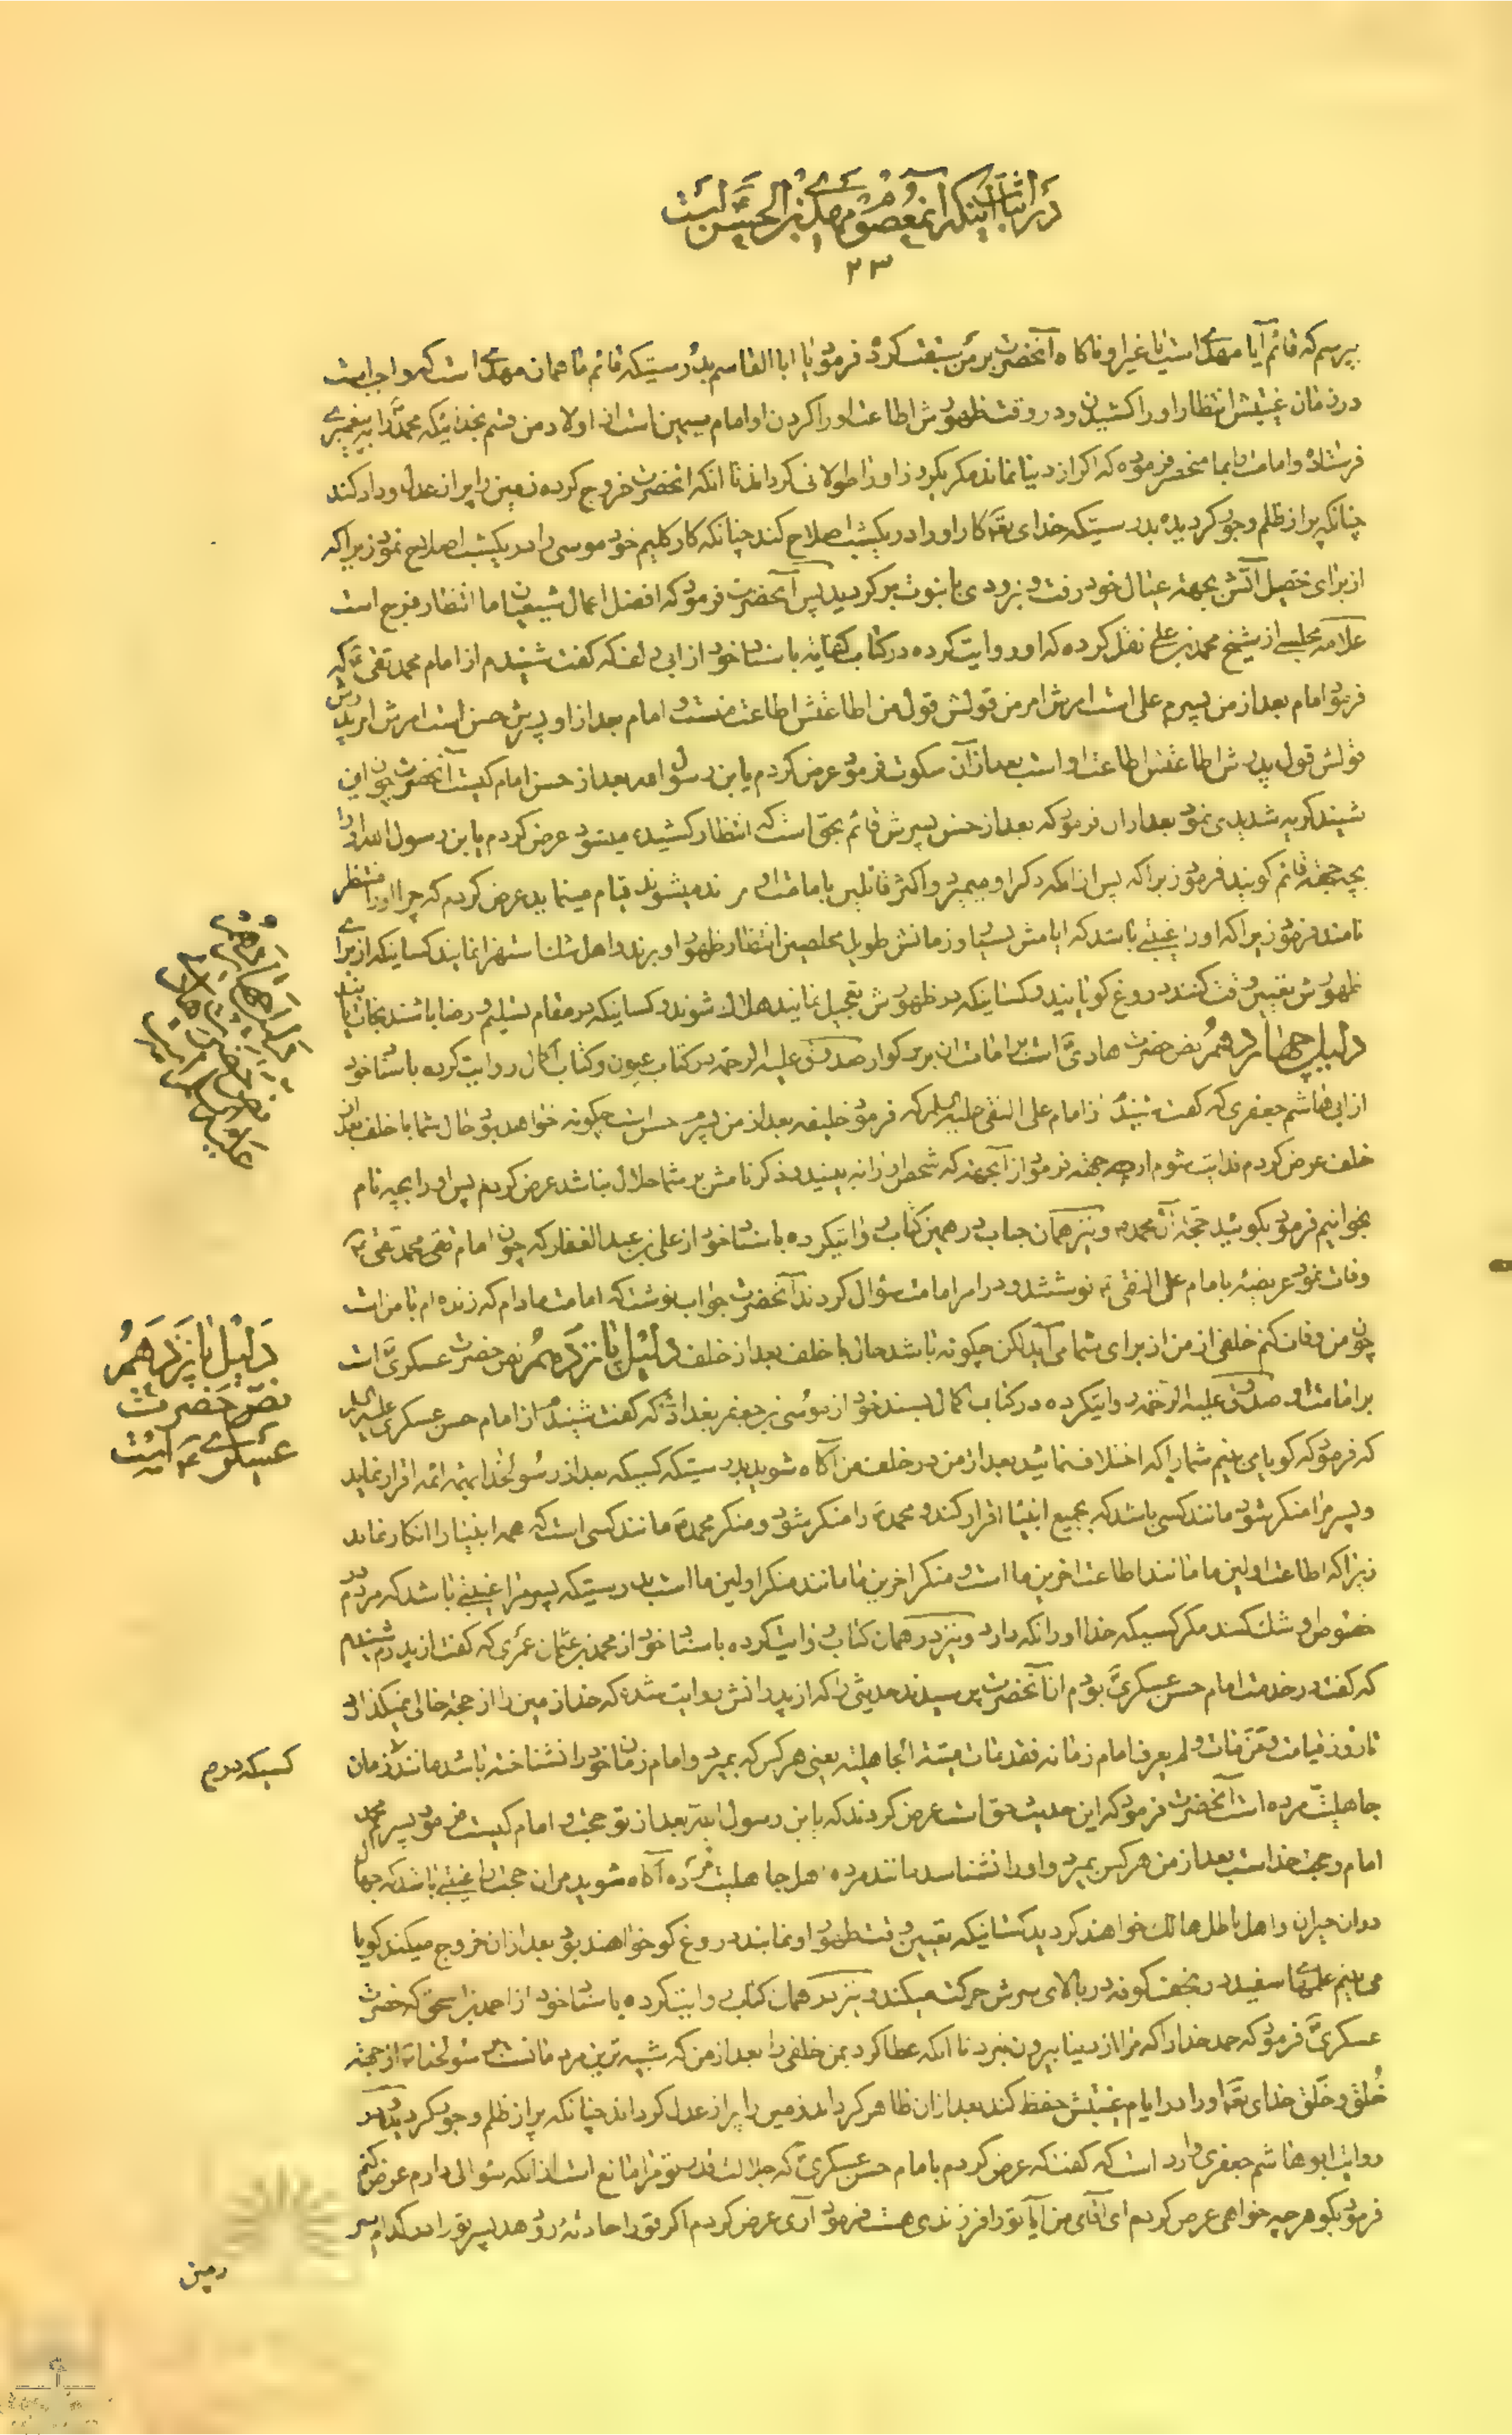 در اثبات اینکه آنمعصوم مهدی بن الحسن است
۲۳
بپرسم که قائم آیا مهدی است یا غیر او ناگاه آنحضرت بر من سبقت کرد فرمود یا ابا القاسم بدرستیکه قائم ما همان مهدی است که واجب است
در زمان غیبتش انتظار او را کشیدن و در وقت ظهورش اطاعت او را کردن او امام سیمین است از اولاد من قسم بخدائیکه محمد را به پیغمبری
فرستاده و امامت را بما منحصر فرموده که اگر از دنیا نماند مگر یکروز او را طولانی گرداند تا آنکه آنحضرت خروج کرده زمین را پر از عدل و داد کند
چنانکه پر از ظلم و جور گردیده بدرستیکه خدای تعالی کار او را در یکشب اصلاح کند چنانکه کار کلیم خود موسی را در یکشب اصلاح نمود زیرا که
از برای تحصیل آتش بجهة عیال خود رفت و بزودی با نبوت برگردید پس آنحضرت فرمود که افضل اعمال شیعیان ما انتظار فرج است
علامه مجلسی از شیخ محمد بن علی نقل کرده که او روایت کرده در کتاب کفایه باسناد خود از ابی دلف که گفت شنیدم از امام محمد تقی ع که
فرمود امام بعد از من پسرم علی است امرش امر من قولش قول من اطاعتش اطاعت منست و امام بعد از او پسرش حسن است امرش امر پدرش
قولش قول پدرش اطاعتش اطاعت او است بعد از آن سکوت فرمود عرض کردم یابن رسول الله بعد از حسن امام کیست آنحضرت چون این
شنید گریه شدیدی نمود بعد از آن فرمود که بعد از حسن پسرش قائم بحق است که انتظار کشیده میشود عرض کردم یابن رسول الله او را
بچه جهة قائم گویند فرمود زیرا که پس از آنکه ذکر او میمیرد و اکثر قائلین بامامت او مرتد میشوند قیام مینماید عرض کردم که چرا او را منتظر
نامند فرمود زیرا که او را غیبتی باشد که ایامش بسیار و زمانش طویل مخلصین انتظار ظهور او برند و اهل شک استهزا نمایند کسانیکه از برای
ظهورش تعیین وقت کنند دروغ گویانند و کسانیکه در ظهورش تعجیل نمایند هلاک شوند و کسانیکه در مقام تسلیم و رضا باشند نجات یابند
دلیل چهاردهم نص حضرت هادی است بر امامت آن بزرگوار صدوق علیه الرحمه در کتاب عیون و کتاب اکمال روایت کرده باسناد خود
از ابی هاشم جعفری که گفت شنیدم از امام علی النقی علیه السلام که فرمود خلیفه بعد از من پسرم حسن است چگونه خواهد بود حال شما با خلف بعد از
خلف عرض کردم فدایت شوم از چه جهة فرمود از آنجهة که شخص او را نه بینید و ذکر نامش بر شما حلال نباشد عرض کردم پس او را بچه نام
بخوانیم فرمود بگوئید حجة آل محمد و نیز همان جناب در همین کتاب روایتکرده باسناد خود از علی بن عبد الغفار که چون امام تقی محمد تقی ع
وفات نمود عریضه بامام علی النقی ع نوشتند و در امر امامت سؤال کردند آنحضرت جواب نوشت که امامت مادام که زنده ام با من است
چون من وفات کنم خلفی از من از برای شما می آید لکن چگونه باشد حال با خلف بعد از خلف دلیل پانزدهم نص حضرت عسکری است
بر امامت او صدوق علیه الرحمه روایتکرده در کتاب اکمال بسند خود از موسی بن جعفر بغدادی که گفت شنیدم از امام حسن عسکری علیه السلام
که فرمود که گویا می بینم شما را که اختلاف نمائید بعد از من در خلف من آگاه شوید بدرستیکه کسیکه بعد از رسولخدا بهمه ائمه اقرار نماید
و پسر مرا منکر شود مانند کسی باشد که بجمیع انبیا اقرار کند و محمد را منکر شود و منکر محمد مانند کسی است که همه انبیا را انکار نماید
زیرا که اطاعت اولین ما مانند اطاعت اخرین ما است و منکر اخرین ما مانند منکر اولین ما است بدرستیکه پسر مرا غیبتی باشد که مردم در
خصوص او شک کنند مگر کسیکه خدا او را نگه دارد و نیز در همان کتاب روایت کرده باسناد خود از محمد بن عثمان عمری که گفت از پدرم شنیدم
که گفت در خدمت امام حسن عسکری بودم از آنحضرت پرسیدند حدیثی را که از پدرانش روایت شده که خدا زمین را از حجة خالی نمیگذارد
تا روز قیامت و من مات و لم یعرف امام زمانه فقد مات میتة الجاهلیة یعنی هر کس که بمیرد و امام زمان خود را نشناخته باشد مانند کسیکه در زمان
جاهلیت مرده است آنحضرت فرمود که این حدیث حق است عرض کردند که یابن رسول الله بعد از تو حجت و امام کیست فرمود پسرم محمد
امام و حجت خدا است بعد از من هر کس بمیرد و او را نشناسد مانند مرده اهل جاهلیت مرده آگاه شوید مر آن حجت را غیبتی باشد که جهال
در آن حیران و اهل باطل هالک خواهند گردید کسانیکه تعیین وقت ظهور او نمایند دروغ گو خواهند بود بعد از آن خروج میکند گویا
می بینم علمهای سفید در نجف کوفه در بالای سرش حرکت میکند و نیز در همان کتاب روایت کرده باسناد خود از احمد بن اسحق که حضرت
عسکری فرمود که حمد خدا را که مرا از دنیا بیرون نبرد تا آنکه عطا کرد بمن خلفی را بعد از من که شبیه ترین مردمانست برسولخدا از جهة
خُلق و خَلق خدای تعالی او را در ایام غیبتش حفظ کند بعد از آن ظاهر گرداند زمین را پر از عدل گرداند چنانکه پر از ظلم و جور گردیده در
روایت ابو هاشم جعفری وارد است که گفت که عرض کردم بامام حسن عسکری که جلالت قدر تو مرا مانع است از آنکه سؤالی دارم عرض کنم
فرمود بگو هر چه خواهی عرض کردم ای آقای من آیا تو را فرزندی هست فرمود آری عرض کردم اگر تو را حادثه رو دهد پسر تو را در کدام سر
زمین
دلیل پانزدهم
نص حضرت
عسکری ع است
کسیکه در